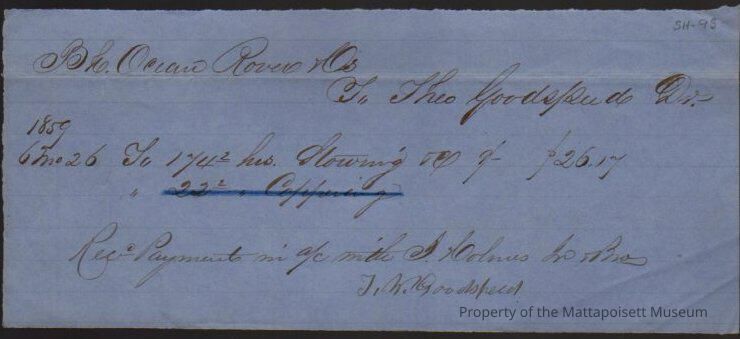 SH-95
Bk. Ocean Rover & Os
To Theo Goodspeed Dr.
1859
6 mo 26 To 174² hrs. Stowing &c 9/- $26.17
" 22² " Coppering
Recd Payment in a/c with J. Holmes Jr & Bro
T. W. Goodspeed
Property of the Mattapoisett Museum